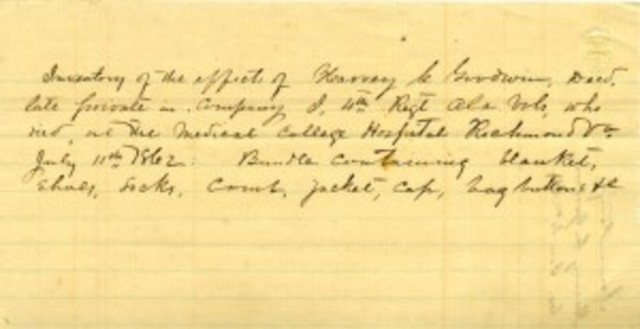 Inventory of the effects of Harvey C Goodwin, Decd.
late private in Company I, 4th Regt Ala Vols, who
died, at the Medical College Hospital Richmond Va
July 11th 1862: Bundle containing blanket,
shoes, socks, comb, jacket, cap, bag buttons &c